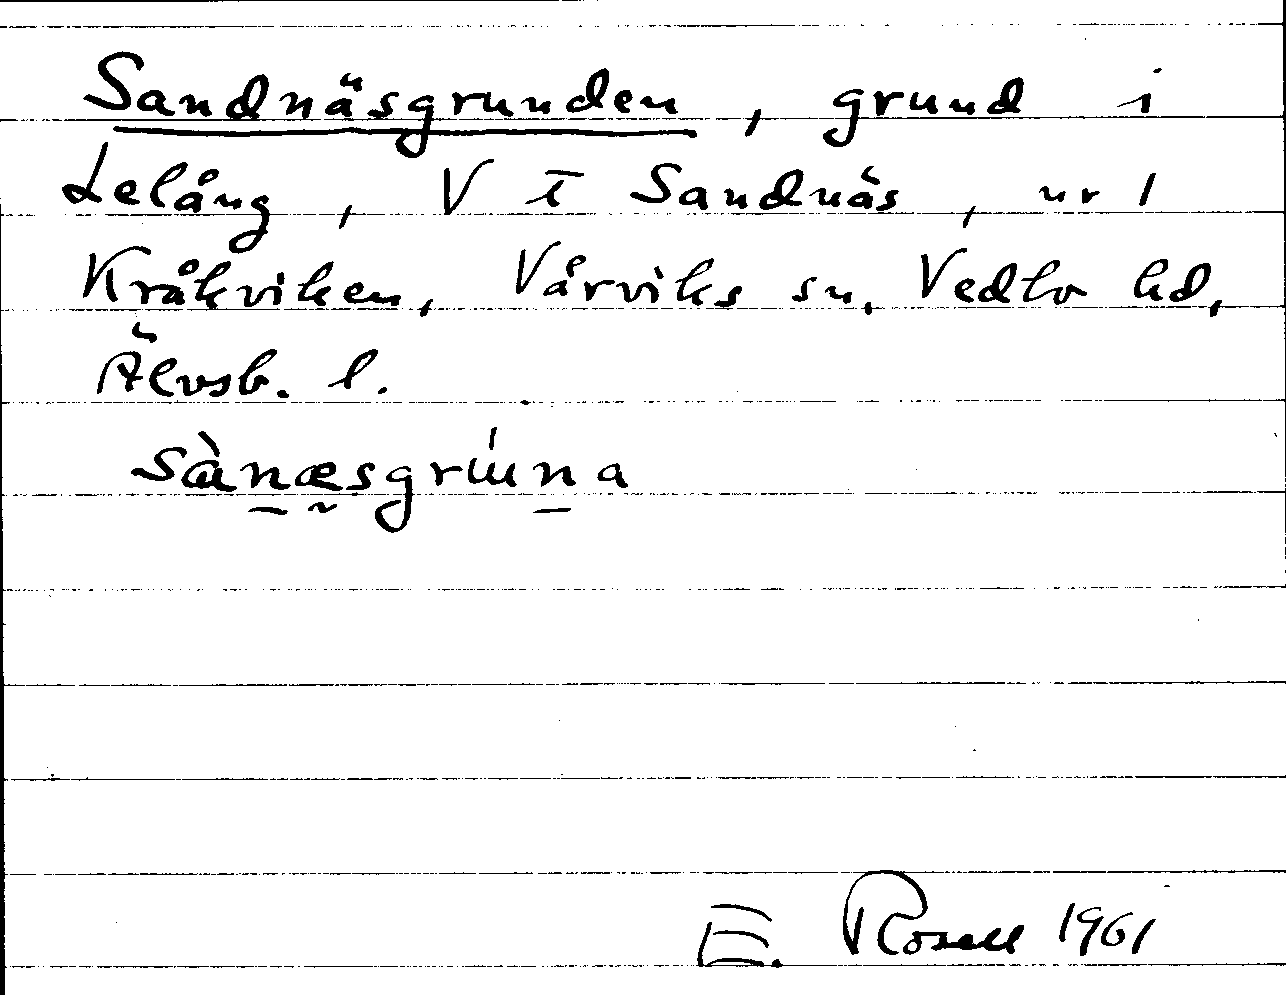 Sandnäsgrunden, grund i
Lelång, V T Sandnäs, nr 1
Kråkviken, Vårviks sn, Vedbo hd,
Älvsb. l.
sànæsgrúna
E. Rosell 1961